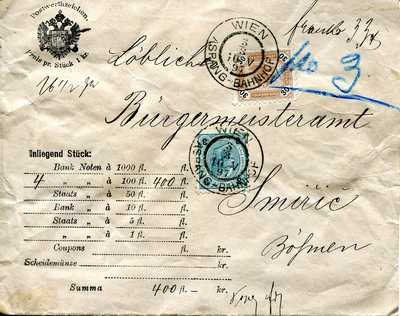 Postwerthzeichen.
Preis pr. Stück 1 kr.
franko
No 3
WIEN
ASPANG-BAHNHOF
30
30
Löbliches
Bürgermeisteramt
WIEN
ASPANG-BAHNHOF
Smiřic
Böhmen
Inliegend Stück:
Bank Noten à 1000 fl. fl.
4 „ „ à 100 fl. 400 fl.
Staats „ à 50 fl. fl.
Bank „ à 10 fl. fl.
Staats „ à 5 fl. fl.
„ „ à 1 fl. fl.
Coupons fl. kr.
Scheidemünze fl. kr.
Summa 400 fl. – kr.